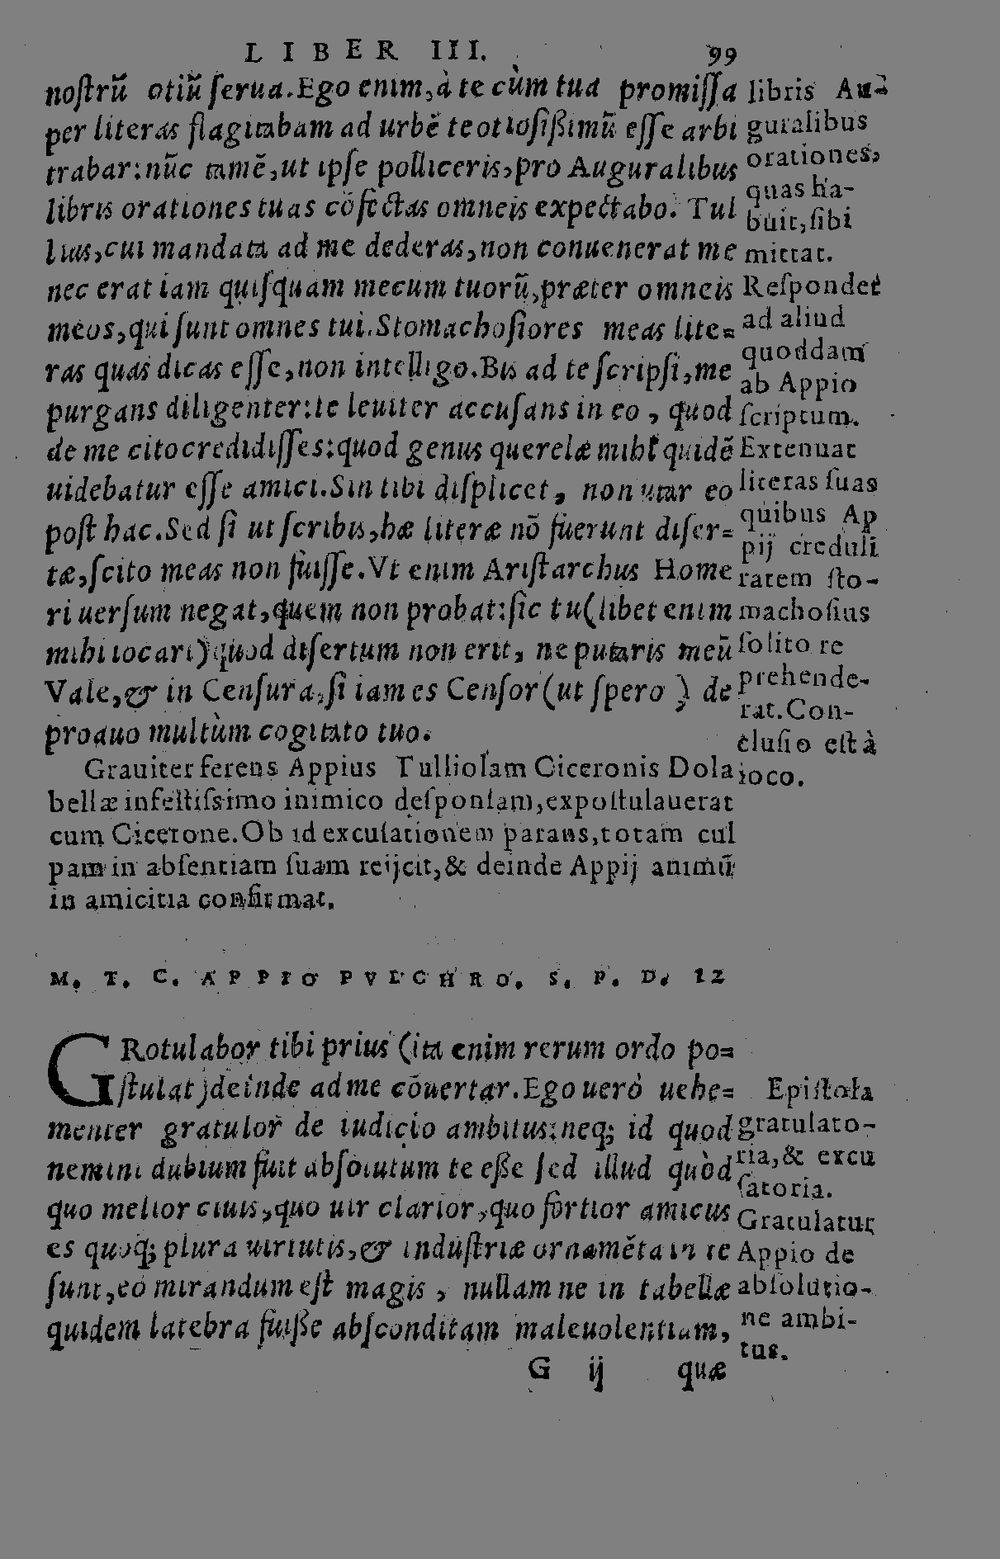 LIBER III. 99
nostrũ otiũ serua. Ego enim, à te cùm tua promissa
per literas flagitabam ad urbẽ te otiosißimũ esse arbi
trabar: nũc tamẽ, ut ipse polliceris, pro Auguralibus
libris orationes tuas cõfectas omneis expectabo. Tul
lius, cui mandata ad me dederas, non conuenerat me
nec erat iam quisquam mecum tuorũ, præter omneis
meos, qui sunt omnes tui. Stomachosiores meas lite=
ras quas dicas esse, non intelligo. Bis ad te scripsi, me
purgans diligenter: te leuiter accusans in eo, quod
de me cito credidisses: quod genus querelæ mihi quidẽ
uidebatur esse amici. Sin tibi displicet, non utar eo
post hac. Sed si ut scribis, hæ literæ nõ fuerunt diser=
tæ, scito meas non fuisse. Vt enim Aristarchus Home
ri uersum negat, quem non probat: sic tu (libet enim
mihi iocari) quod disertum non erit, ne putaris meũ
Vale, & in Censura, si iam es Censor (ut spero) de
proauo multùm cogitato tuo.
libris Au-
guralibus
orationes,
quas ha-
buit, sibi
mittat.
Respondet
ad aliud
quoddam
ab Appio
scriptum.
Extenuat
literas suas
quibus Ap
pij creduli
tatem sto-
machosius
solito re
prehende-
rat. Con-
clusio est à
ioco.
Grauiter ferens Appius Tulliolam Ciceronis Dola
bellæ infestissimo inimico desponsam, expostulauerat
cum Cicerone. Ob id excusationem parans, totam cul
pam in absentiam suam reijcit, & deinde Appij animũ
in amicitia confirmat.
M. T. C. APPIO PVLCHRO. S. P. D. 12
GRotulabor tibi prius (ita enim rerum ordo po=
stulat) deinde ad me cõuertar. Ego uerò uehe=
menter gratulor de iudicio ambitus: neq; id quod
nemini dubium fuit absolutum te eße sed illud quòd
quo melior ciuis, quo uir clarior, quo fortior amicus
es quoq; plura uirtutis, & industriæ ornamẽta in te
sunt, eò mirandum est magis, nullam ne in tabellæ
quidem latebra fuiße absconditam maleuolentiam,
Epistola
gratulato-
ria, & excu
satoria.
Gratulatur
Appio de
absolutio-
ne ambi-
tus.
G ij quæ